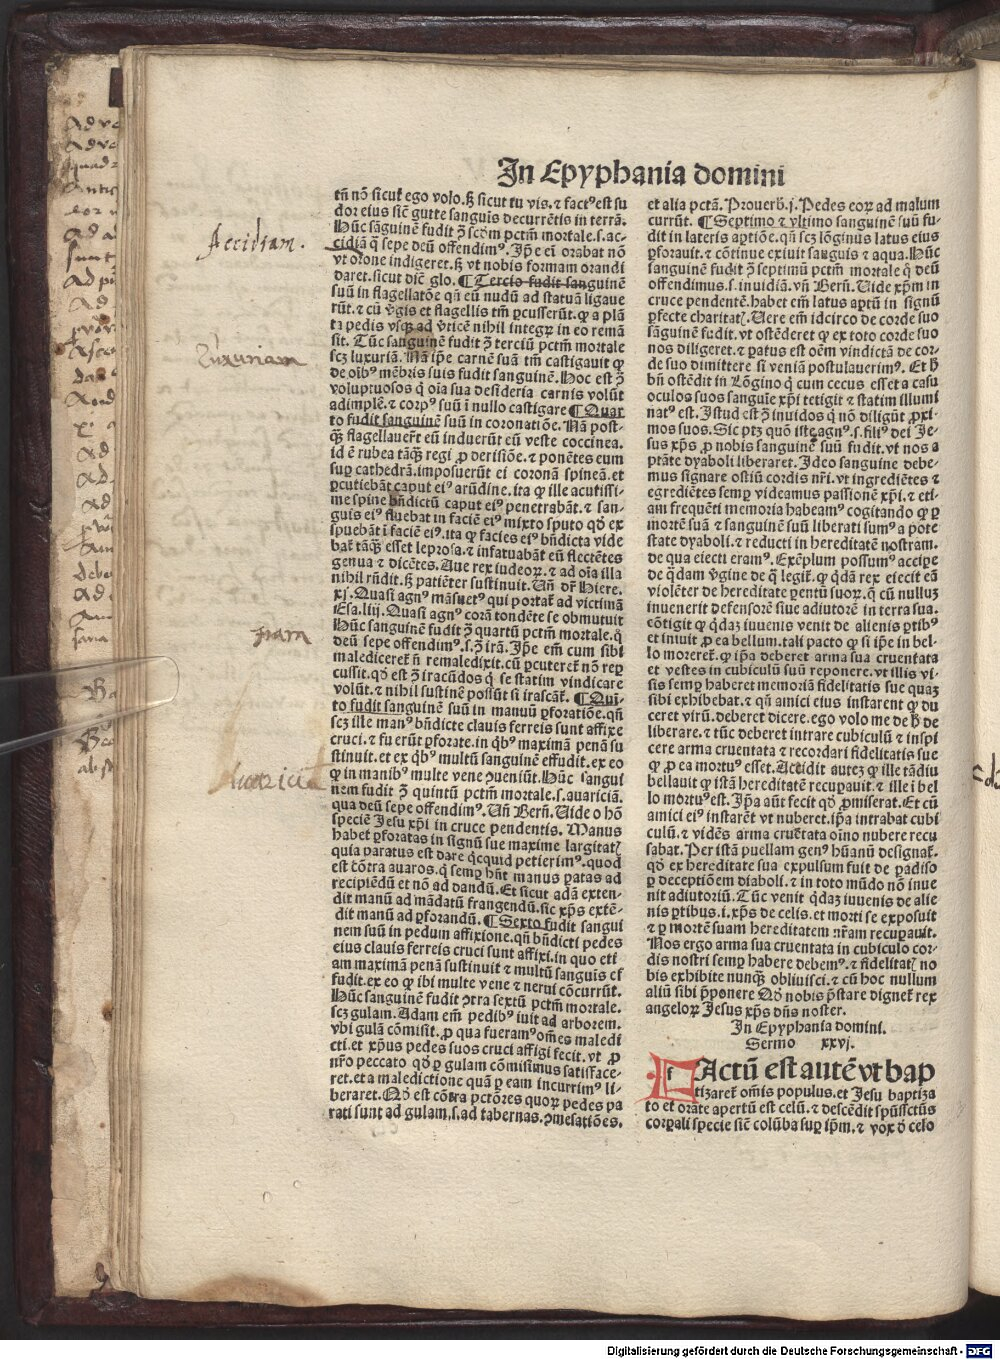 In Epyphania domini
tñ nõ sicut ego volo. sꝫ sicut tu vis. ⁊ factꝰ est su
dor eius sic̃ gutte sanguis decurrẽtis in terrã.
Hũc sãguinẽ fudit ꝯ̃ scd̃m pctm̃ mortale. s. ac
cidiã q̃ sepe deũ offendimꝰ. Ip̃e em̃ orabat nõ
vt orõne indigeret. sꝫ vt nobis formam orandi
daret. sicut dic̃ glo. ¶ Tercio fudit sanguinẽ
suũ in flagellatõe qñ eũ nudũ ad statuã ligaue
rũt. ⁊ cũ v̓gis et flagellis tm̃ ꝑcusserũt. ꝙ a plã
ta pedis vsqꝫ ad v̓ticẽ nihil integrꝝ in eo remã
sit. Tũc sanguinẽ fudit ꝯ̃ terciũ pctm̃ mortale
scꝫ luxuriã. Nã ip̃e carnẽ suã tm̃ castigauit ꝙ
de oĩbꝰ mẽbris suis fudit sanguinẽ. Hoc est ꝯ̃
voluptuosos q̓ oĩa sua desideria carnis volũt
adimplẽ. ⁊ corpꝰ suũ ĩ nullo castigare ¶ Quar
to fudit sanguinẽ suũ in coronatiõe. Nã post-
qꝫ flagellauer̃t eũ induerũt eũ veste coccinea.
id ẽ rubea tãqꝫ regi ꝓ derisiõe. ⁊ ponẽtes eum
suꝑ cathedrã. imposuerũt ei coronã spineã. et
ꝑcutiebãt caput eiꝰ arũdine. ita ꝙ ille acutissi-
me spine bñdictũ caput eiꝰ penetrabãt. ⁊ san-
guis eiꝰ fluebat in faciẽ eiꝰ mixto sputo qd̓ ex
spuebãt ĩ faciẽ eiꝰ. ita ꝙ facies eiꝰ bñdicta vide
bat̃ tãqꝫ esset leprosa. ⁊ infatuabãt eũ flectẽtes
genua ⁊ dicẽtes. Aue rex iudeoꝝ. ⁊ ad oĩa illa
nihil rñdit. sꝫ patiẽter sustinuit. Vñ dr̃ Hiere.
xj. Quasi agnꝰ mãsuetꝰ qui portat̃ ad victimã
Esa. liij. Quasi agnꝰ corã tondẽte se obmutuit
Hũc sanguinẽ fudit ꝯ̃ quartũ pctm̃ mortale. q̃
deũ sepe offendimꝰ. s. ꝯ̃ irã. Ip̃e em̃ cum sibi
malediceret̃ ñ remaledixit. cũ ꝑcuteret̃ nõ reꝑ
cussit. qd̓ est ꝯ̃ iracũdos q̓ se statim vindicare
volũt. ⁊ nihil sustinẽ possũt si irascãt̃. ¶ Quĩ-
to fudit sanguinẽ suũ in manuũ ꝑforatiõe. qñ
scꝫ ille manꝰ bñdicte clauis ferreis sunt affixe
cruci. ⁊ fuerũt ꝑforate. in q̓bꝰ maximã penã su
stinuit. et ex q̓bꝰ multũ sanguinẽ effudit. ex eo
ꝙ in manibꝰ multe vene ꝯueniũt. Hũc sangui
nem fudit ꝯ̃ quintũ pctm̃ mortale. s. auariciã.
qua deũ sepe offendimꝰ. Vñ Berñ. Vide o hõ
speciẽ Jesu xp̃i in cruce pendentis. Manus
habet ꝑforatas in signũ sue maxime largitatꝭ
quia paratus est dare qcquid petierimꝰ. quod
est cõtra auaros. q̓ semꝑ hñt manus ꝑatas ad
recipiẽdũ et nõ ad dandũ. Et sicut adã exten-
dit manũ ad mãdatũ frangendũ. sic xp̃s extẽ-
dit manũ ad ꝑforandũ. ¶ Sexto fudit sangui
nem suũ in pedum affixione. qñ bñdicti pedes
eius clauis ferreis cruci sunt affixi. in quo eti
am maximã penã sustinuit ⁊ multũ sanguis ef
fudit. ex eo ꝙ ibi multe vene ⁊ nerui cõcurrũt.
Hũc sanguinẽ fudit ꝯtra sextũ pctm̃ mortale.
scꝫ gulam. Adam em̃ pedibꝰ iuit ad arborem.
vbi gulã cõmisit. ꝓ qua fueramꝰ om̃es maledi
cti. et xp̃us pedes suos cruci affigi fecit. vt ꝓ
nr̃o peccato qd̓ ꝑ gulam cõmisimus satisface-
ret. et a maledictione quã ꝑ eam incurrimꝰ li-
beraret. Qd̓ est cõtra pctõres quoꝝ pedes pa
rati sunt ad gulam. s. ad tabernas. ꝯmesatiões.
et alia pctã. Prouerb̓. j. Pedes eoꝝ ad malum
currũt. ¶ Septimo ⁊ vltimo sanguinẽ suũ fu-
dit in lateris aꝑtiõe. qñ scꝫ lõginus latus eius
ꝑforauit. ⁊ cõtinue exiuit sanguis ⁊ aqua. Hũc
sanguinẽ fudit ꝯ̃ septimũ pctm̃ mortale q̓ deũ
offendimus. s. inuidiã. vñ Berñ. Vide xp̃m in
cruce pendentẽ. habet em̃ latus aꝑtũ in signũ
ꝑfecte charitatꝭ. Vere em̃ idcirco de corde suo
sãguinẽ fudit. vt ostẽderet ꝙ ex toto corde suo
nos diligeret. ⁊ ꝑatus est oẽm vindictã de cor-
de suo dimittere si veniã postulauerimꝰ. Et h̓
bñ ostẽdit in Lõgino q̓ cum cecus esset a casu
oculos suos sanguĩe xp̃i tetigit ⁊ statim illumi
natꝰ est. Istud est ꝯ̃ inuidos q̓ nõ diligũt ꝓxi-
mos suos. Sic ptꝫ quõ iste agnꝰ. s. filiꝰ dei Je-
sus xp̃s ꝓ nobis sanguinẽ suũ fudit. vt nos a
ptãte dyaboli liberaret. Ideo sanguine debe-
mus signare ostiũ cordis nr̃i. vt ingrediẽtes ⁊
egrediẽtes semꝑ videamus passionẽ xp̃i. ⁊ eti-
am frequẽti memoria habeamꝰ cogitando ꝙ ꝑ
mortẽ suã ⁊ sanguinẽ suũ liberati sumꝰ a pote
state dyaboli. ⁊ reducti in hereditatẽ nostram.
de qua eiecti eramꝰ. Exẽplum possumꝰ accipe
de q̃dam v̓gine de q̃ legit̃. ꝙ q̃dã rex eiecit eã
violẽter de hereditate ꝑentũ suoꝝ. q̃ cũ nulluꝫ
inuenirit defensorẽ siue adiutorẽ in terra sua.
cõtigit ꝙ q̃daꝫ iuuenis venit de alienis ꝑtibꝰ
et iniuit ꝓ ea bellum. tali pacto ꝙ si ip̃e in bel-
lo moreret̃. ꝙ ip̃a deberet arma sua cruentata
et vestes in cubiculũ suũ reponere. vt illis vi-
sis semꝑ haberet memoriã fidelitatis sue quaꝫ
sibi exhibebat. ⁊ qñ amici eius instarent ꝙ du
ceret virũ. deberet dicere. ego volo me de h̓ de
liberare. ⁊ tũc deberet intrare cubiculũ ⁊ inspi
cere arma cruentata ⁊ recordari fidelitatis sue
ꝙ ꝓ ea mortuꝰ esset. Accidit auteꝫ ꝙ ille tãdiu
bellauit ꝙ istã hereditatẽ recuꝑauit. ⁊ ille ĩ bel
lo mortuꝰ est. Ip̃a aũt fecit qd̓ ꝓmiserat. Et cũ
amici eiꝰ instarẽt vt nuberet. ip̃a intrabat cubi
culũ. ⁊ vidẽs arma cruẽtata oĩno nubere recu
sabat. Per istã puellam genꝰ hũanũ designat̃.
qd̓ ex hereditate sua expulsum fuit de ꝑadiso
ꝑ deceptiõem diaboli. ⁊ in toto mũdo nõ inue
nit adiutoriũ. Tũc venit q̃daꝫ iuuenis de alie
nis ꝑtibus. i. xp̃s de celis. et morti se exposuit
⁊ ꝑ mortẽ suam hereditatem nr̃am recuꝑauit.
Nos ergo arma sua cruentata in cubiculo cor-
dis nostri semꝑ habere debemꝰ. ⁊ fidelitatꝭ no
bis exhibite nunqꝫ obliuisci. ⁊ cũ hoc nullum
aliũ sibi p̃ponere Qd̓ nobis p̃stare dignet̃ rex
angeloꝝ Jesus xp̃s dñs noster.
In Epyphania domini.
Sermo xxvj.
FActũ est autẽ vt bap
tizaret̃ om̃is populus. et Jesu baptiza
to et orãte apertũ est celũ. ⁊ descẽdit sp̃ussctũs
corꝑali specie sic̃ colũba suꝑ ip̃m. ⁊ vox d̓ celo
Accidiam.
Luxuriam
Iram
Auariciã
Digitalisierung gefördert durch die Deutsche Forschungsgemeinschaft - DFG